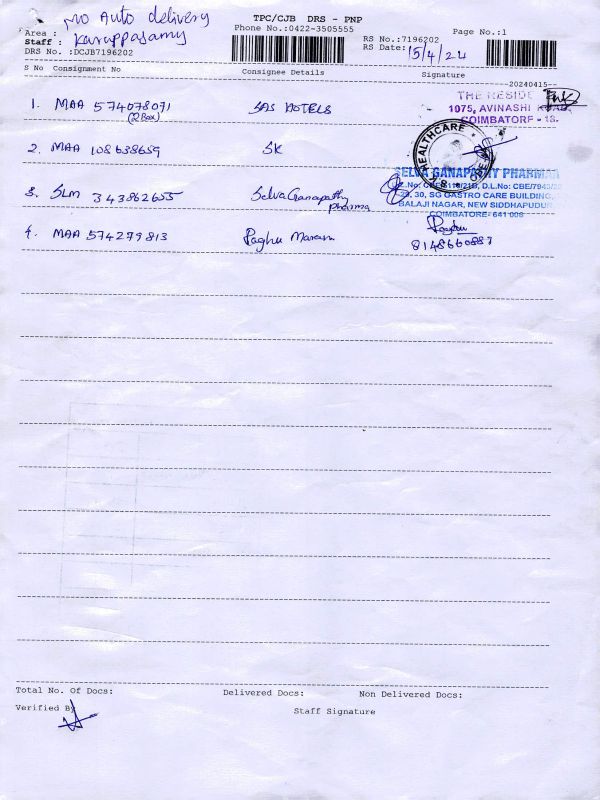 No Auto delivery
TPC/CJB DRS - PNP
Area :
Phone No.:0422-3505555
Page No.:1
Staff : Karuppasamy
RS No.:7196202
RS Date: 15/4/24
DRS No. :DCJB7196202
S No Consignment No Consignee Details Signature
20240415
1. MAA 574078071 SAS HOTELS
(2 Box)
THE RESIDE
1075, AVINASHI ROAD,
COIMBATORE - 18.
2. MAA 108638659 SK
HEALTHCARE
3. SLM 343862655 Selva Ganapathy
pharma
SELVA GANAPATHY PHARMA
29, 30, SG GASTRO CARE BUILDING,
BALAJI NAGAR, NEW SIDDHAPUDUR,
COIMBATORE- 641 006
4. MAA 574279813 Raghu
8148660887
Total No. Of Docs: Delivered Docs: Non Delivered Docs:
Verified By
Staff Signature